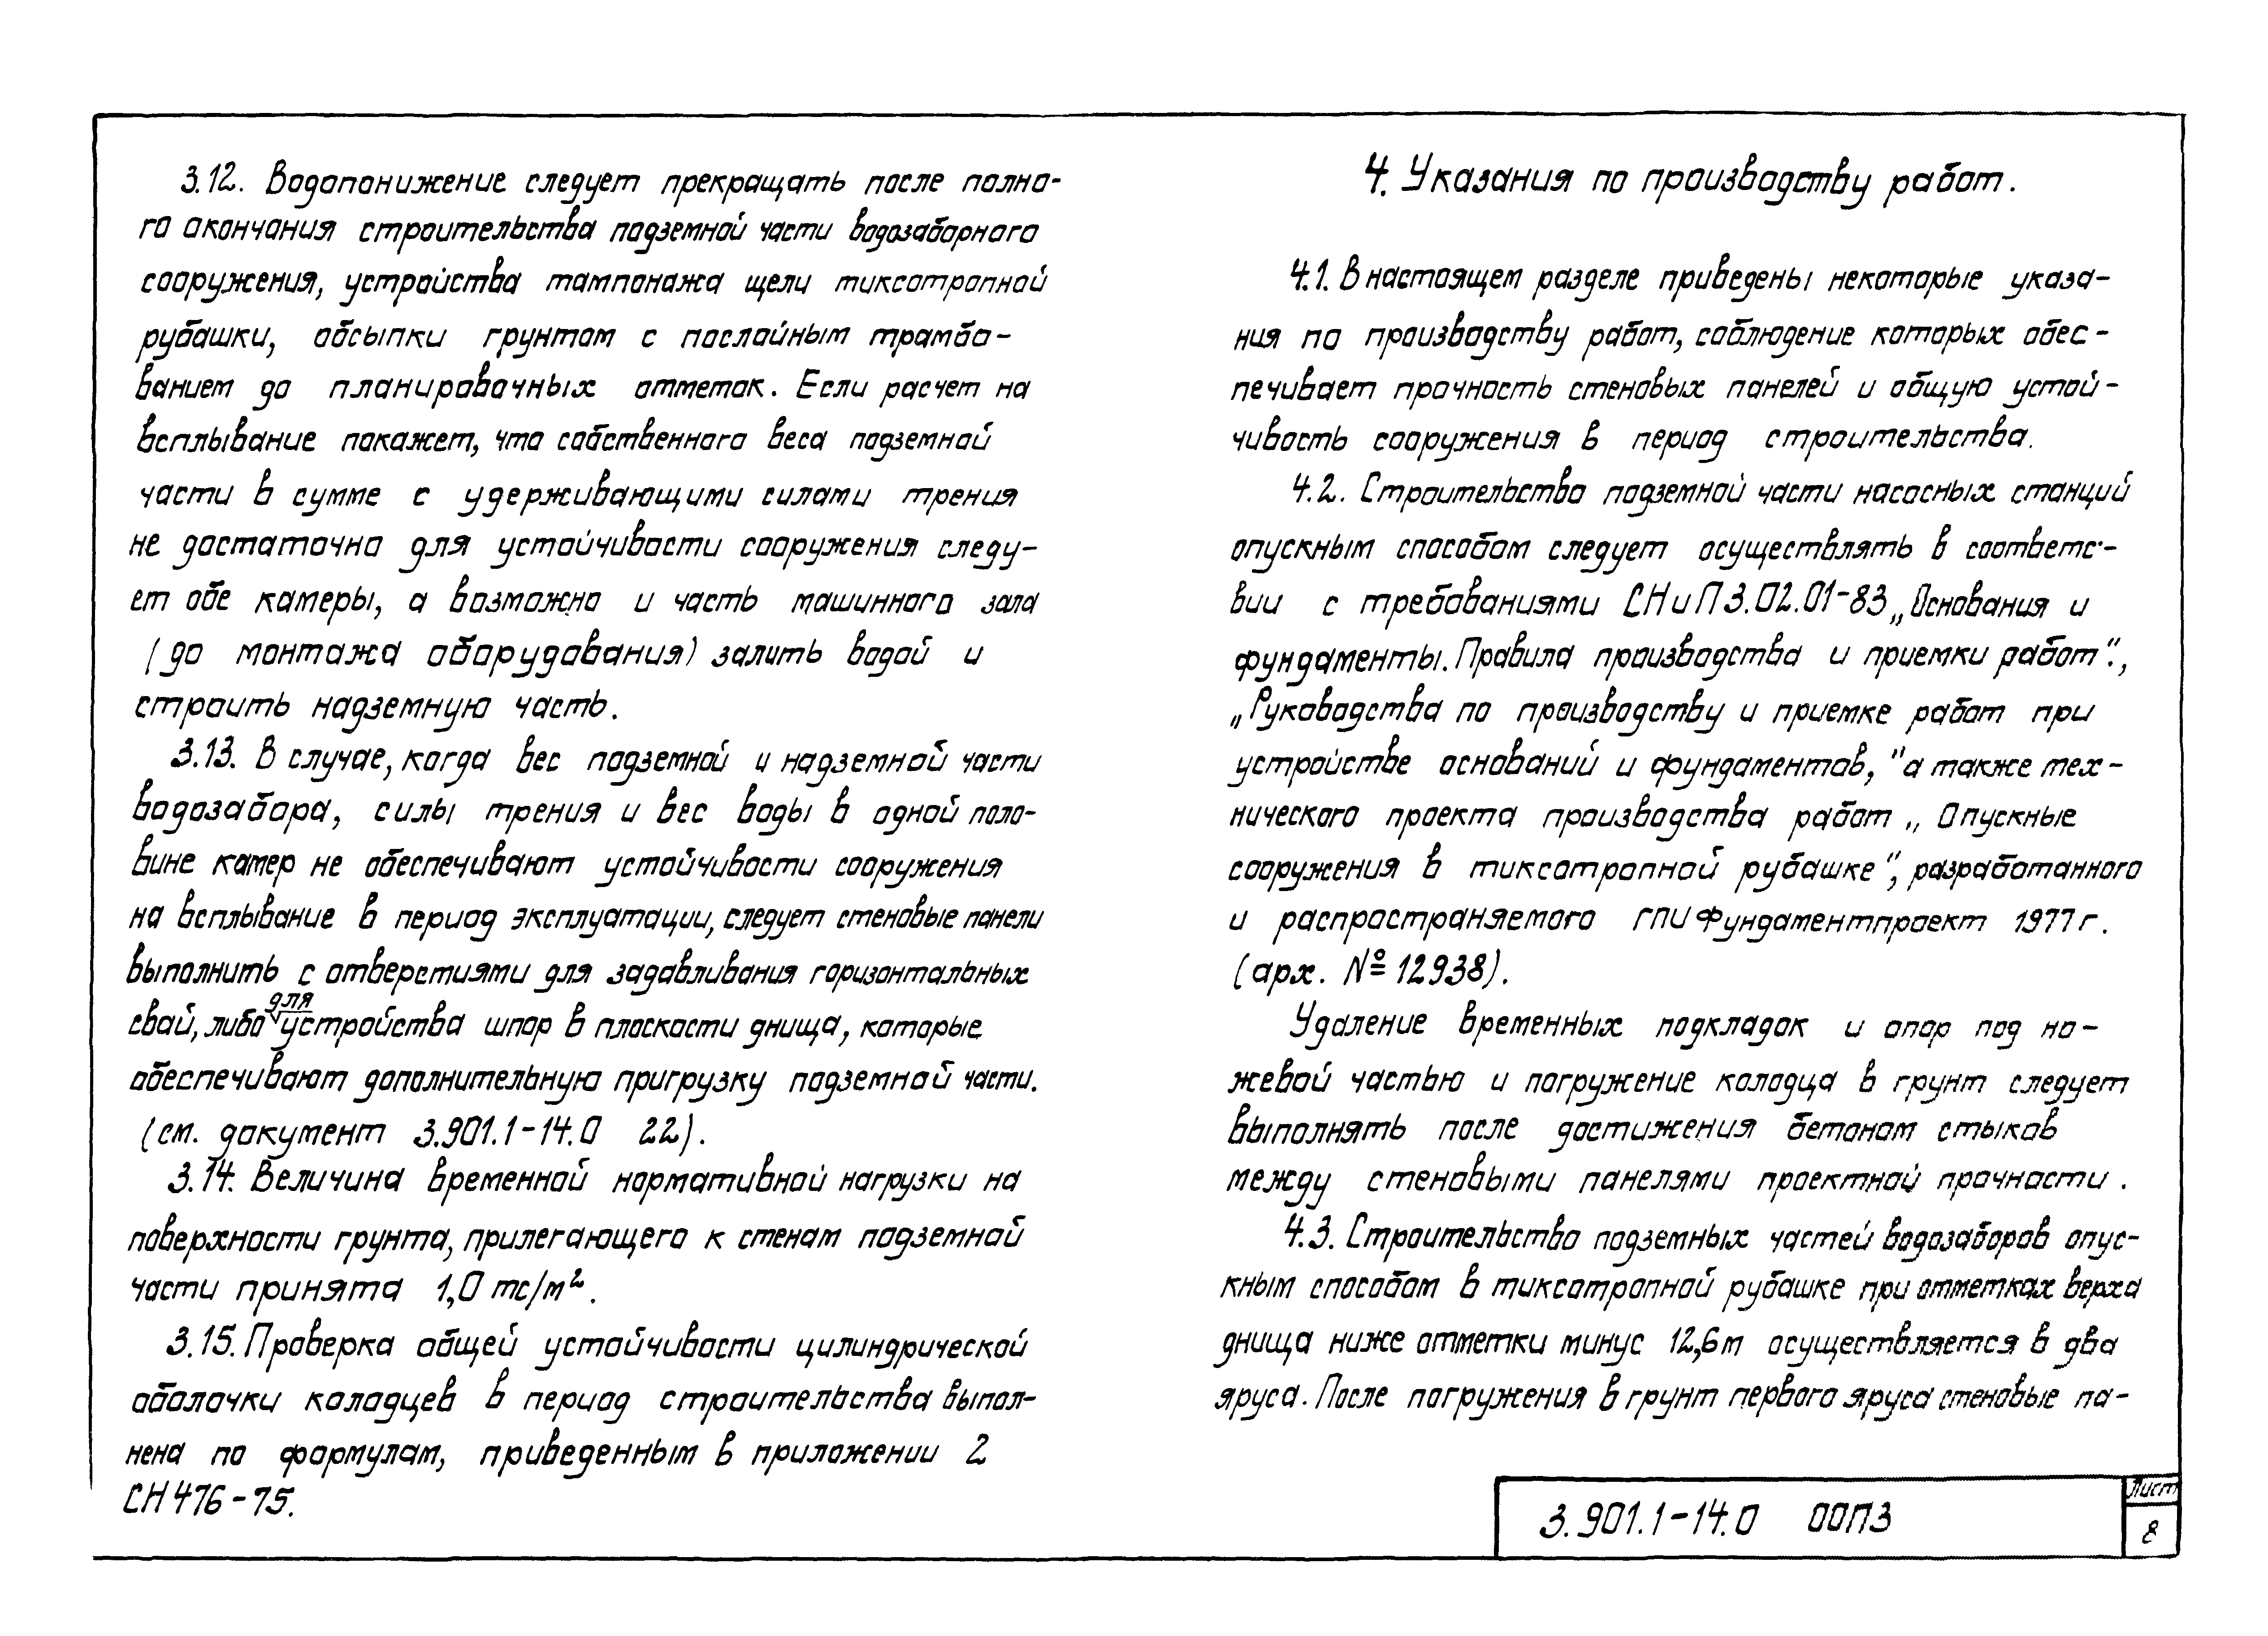 3.12. Водопонижение следует прекращать после полно-
го окончания строительства подземной части водозаборного
сооружения, устройства тампонажа щели тиксотропной
рубашки, обсыпки грунтом с послойным трамбо-
ванием до планировочных отметок. Если расчет на
всплывание покажет, что собственного веса подземной
части в сумме с удерживающими силами трения
не достаточно для устойчивости сооружения следу-
ет обе камеры, а возможно и часть машинного зала
(до монтажа оборудования) залить водой и
строить надземную часть.
3.13. В случае, когда вес подземной и надземной части
водозабора, силы трения и вес воды в одной поло-
вине камер не обеспечивают устойчивости сооружения
на всплывание в период эксплуатации, следует стеновые панели
выполнить с отверстиями для задавливания горизонтальных
свай, либо для устройства шпор в плоскости днища, которые
обеспечивают дополнительную пригрузку подземной части.
(см. документ 3.901.1-14.0 22).
3.14. Величина временной нормативной нагрузки на
поверхности грунта, прилегающего к стенам подземной
части принята 1,0 тс/м².
3.15. Проверка общей устойчивости цилиндрической
оболочки колодцев в период строительства выпол-
нена по формулам, приведенным в приложении 2
СН 476-75.
4. Указания по производству работ.
4.1. В настоящем разделе приведены некоторые указа-
ния по производству работ, соблюдение которых обес-
печивает прочность стеновых панелей и общую устой-
чивость сооружения в период строительства.
4.2. Строительство подземной части насосных станций
опускным способом следует осуществлять в соответс-
вии с требованиями СНиП 3.02.01-83 „Основания и
фундаменты. Правила производства и приемки работ".,
„Руководства по производству и приемке работ при
устройстве оснований и фундаментов," а также тех-
нического проекта производства работ „Опускные
сооружения в тиксотропной рубашке", разработанного
и распространяемого ГПИ Фундаментпроект 1977 г.
(арх. № 12938).
Удаление временных подкладок и опор под но-
жевой частью и погружение колодца в грунт следует
выполнять после достижения бетоном стыков
между стеновыми панелями проектной прочности.
4.3. Строительство подземных частей водозаборов опус-
кным способом в тиксотропной рубашке при отметках верха
днища ниже отметки минус 12,6 м осуществляется в два
яруса. После погружения в грунт первого яруса стеновые па-
3.901.1-14.0 00ПЗ
Лист
8